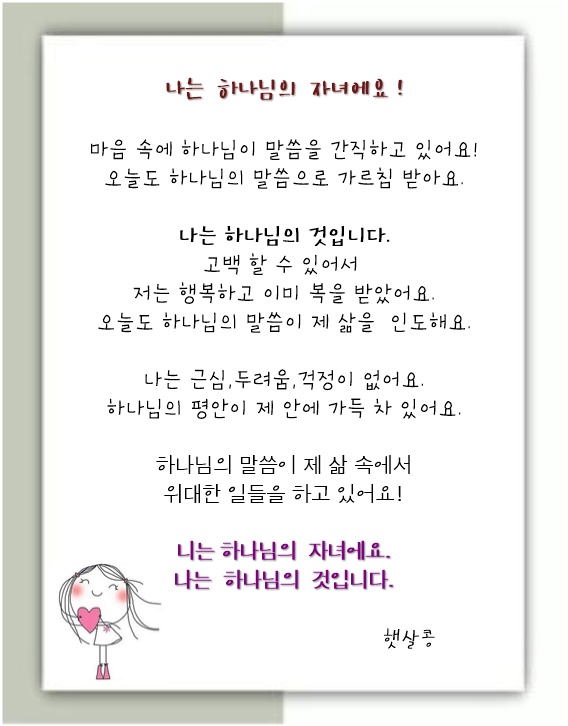 나는 하나님의 자녀에요!
마음 속에 하나님이 말씀을 간직하고 있어요!
오늘도 하나님의 말씀으로 가르침 받아요.
나는 하나님의 것입니다.
고백 할 수 있어서
저는 행복하고 이미 복을 받았어요.
오늘도 하나님의 말씀이 제 삶을 인도해요.
나는 근심,두려움,걱정이 없어요.
하나님의 평안이 제 안에 가득 차 있어요.
하나님의 말씀이 제 삶 속에서
위대한 일들을 하고 있어요!
니는 하나님의 자녀에요.
나는 하나님의 것입니다.
햇살콩